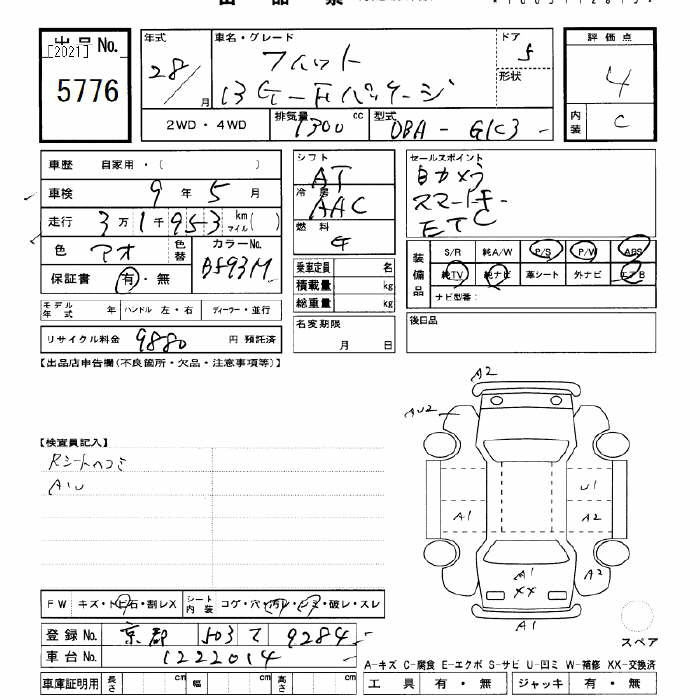 出品票
出品No.
[2021]
5776
年式
28/
月
車名・グレード
フィット
13G-Fパッケージ
ドア
5
形状
評価点
4
内装
C
2WD・4WD
排気量
1300
cc
型式
DBA - GK3 -
車歴 自家用・( )
車検 9年 5月
走行 3万1千953 km マイル( )
色 アオ
色替
カラーNo.
B593M
保証書 有・無
モデル年式 年 ハンドル 左・右 ディーラー・並行
リサイクル料金 9880 円 預託済
シフト
AT
冷房
AAC
燃料
G
乗車定員 名
積載量 kg
総重量 kg
名変期限
月 日
セールスポイント
自カメラ
スマートキー
ETC
装備品
S/R 純A/W P/S P/W ABS
純TV 純ナビ 革シート 外ナビ エアB
ナビ型番:
後日品
【出品店申告欄(不良箇所・欠品・注意事項等)】
【検査員記入】
Rシートヘコミ
A1U
A2
AU2
A1
U1
A2
A2
A1
XX
A1
スペア
FW キズ・トビ石・割レX
シート内装 コゲ・穴・汚レ・シミ・破レ・スレ
登録No. 京都 503 て 9284
車台No. 1222014
車庫証明用 長さ cm 幅 cm 高さ cm
A-キズ C-腐食 E-エクボ S-サビ U-凹ミ W-補修 XX-交換済
工具 有・無 ジャッキ 有・無